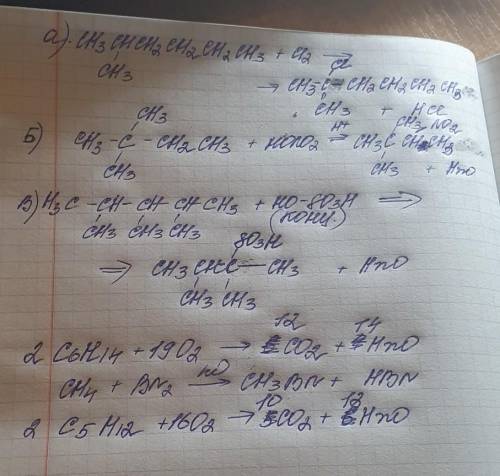 а). CH3CHCH2CH2CH2CH3 + Cl2 →
CH3
Cl
→ CH3-C-CH2CH2CH2CH3
CH3 + HCl
Б) CH3
CH3-C-CH2CH3 + HONO2 H+ → CH3C CHCH3
CH3
CH3 NO2
CH3 + H2O
В) H3C-CH-CH-CH CH3 + HO-SO3H ⟹
CH3 CH3 CH3 (конц.)
SO3H
⟹ CH3CHC-CH3 + H2O
CH3 CH3
2 C6H14 + 19O2 → 12CO2 + 14H2O
CH4 + Br2 → CH3Br + HBr
2 C5H12 + 16O2 → 10CO2 + 12H2O